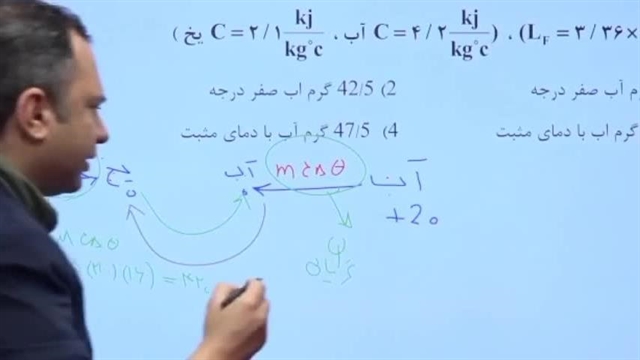 یخ) C = ۲/۱ kj/kg°c آب ، C = ۴/۲ kj/kg°c) ، (L_F = ۳/۳۶×
2) 42/5 گرم اب صفر درجه
رم آب صفر درجه
4) 47/5 گرم آب با دمای مثبت
گرم اب با دمای مثبت
یخ آب mcΔθ آب
0 0 +20
cΔθ